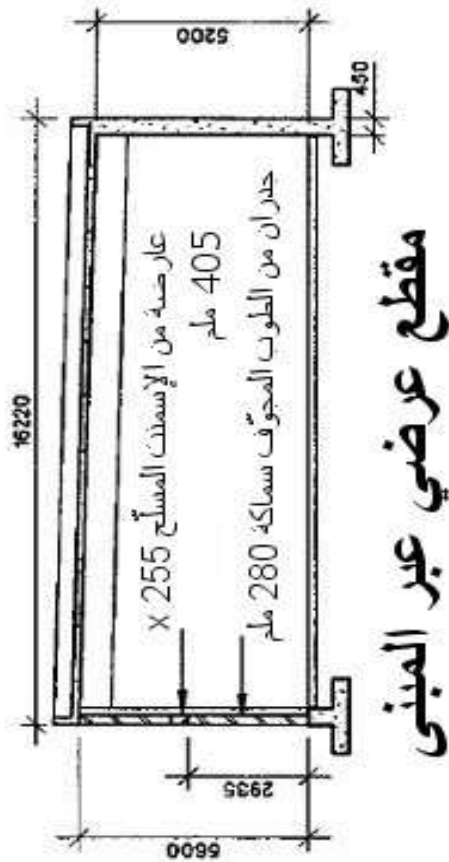 16220
5200
450
عارضة من الإسمنت المسلّح 255 x
405 ملم
جدران من الطوب المجوّف سماكة 280 ملم
2935
5600
مقطع عرضي عبر المبنى